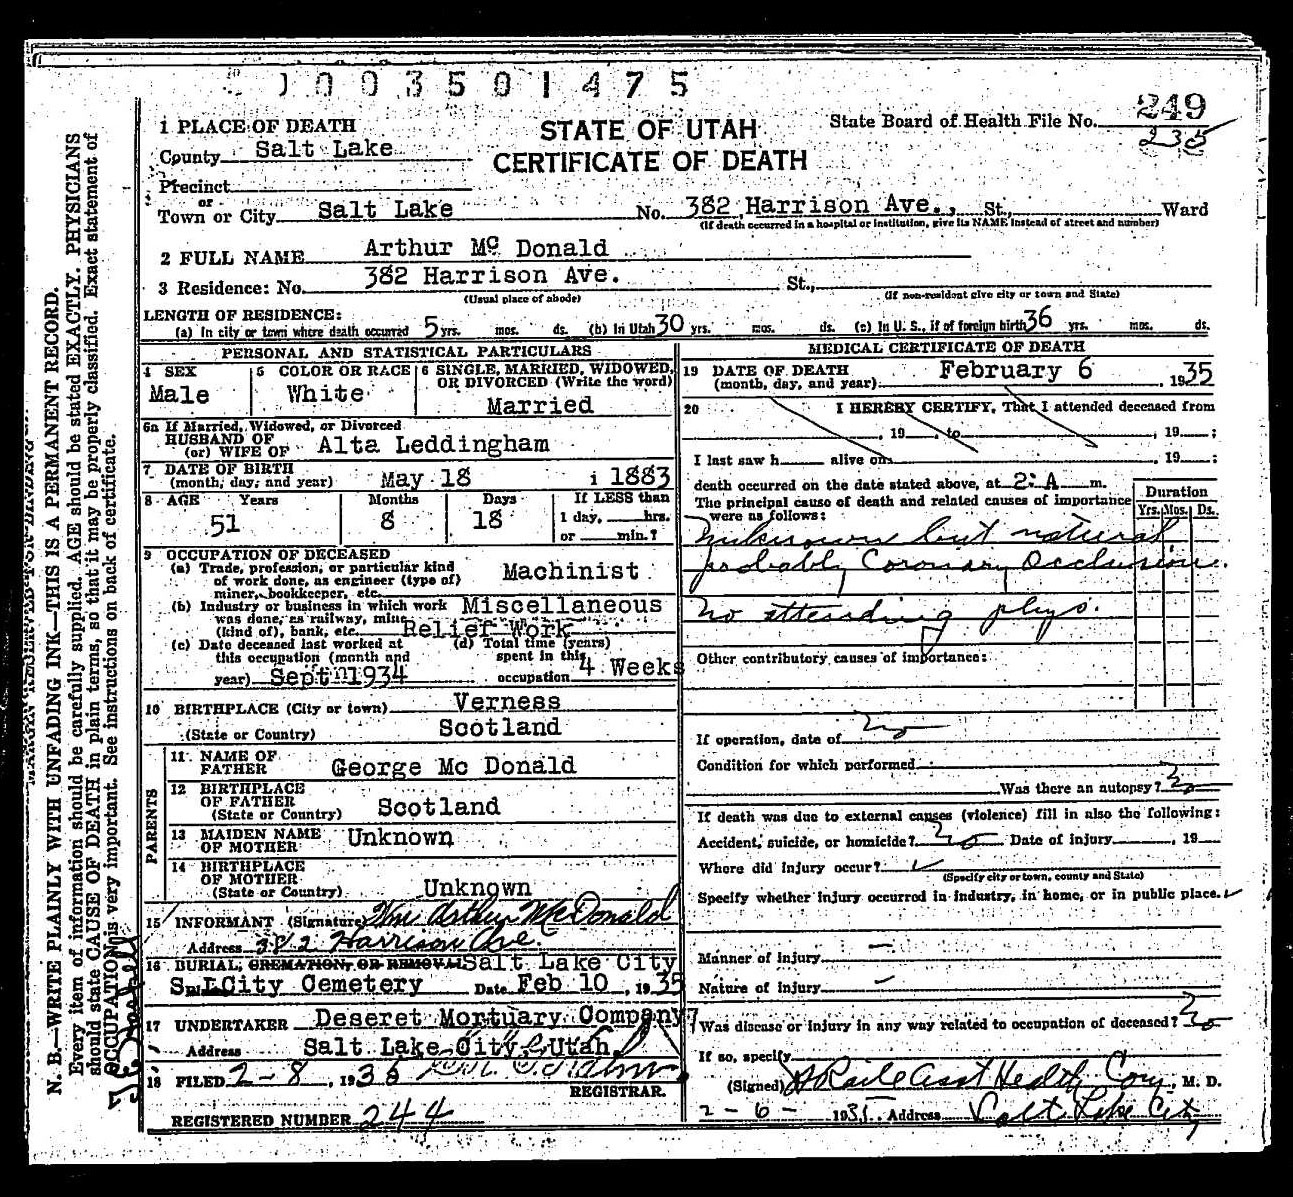 1003501475
249
235
1 PLACE OF DEATH
STATE OF UTAH
State Board of Health File No.
County Salt Lake
CERTIFICATE OF DEATH
Precinct
or
Town or City Salt Lake No. 382 Harrison Ave., St., Ward
(If death occurred in a hospital or institution, give its NAME instead of street and number)
2 FULL NAME Arthur Mc Donald
3 Residence: No. 382 Harrison Ave. St.,
(Usual place of abode) (If non-resident give city or town and State)
LENGTH OF RESIDENCE:
(a) In city or town where death occurred 5 yrs. mos. ds. (b) In Utah 30 yrs. mos. ds. (c) In U. S., if of foreign birth 36 yrs. mos. ds.
PERSONAL AND STATISTICAL PARTICULARS
4 SEX
Male
5 COLOR OR RACE
White
6 SINGLE, MARRIED, WIDOWED,
OR DIVORCED (Write the word)
Married
6a If Married, Widowed, or Divorced
HUSBAND OF
(or) WIFE OF Alta Leddingham
7 DATE OF BIRTH
(month, day, and year) May 18 1883
8 AGE Years Months Days If LESS than
51 8 18 1 day, hrs.
or min.?
9 OCCUPATION OF DECEASED
(a) Trade, profession, or particular kind
of work done, as engineer (type of)
miner, bookkeeper, etc. Machinist
(b) Industry or business in which work Miscellaneous
was done, as railway, mine
(kind of), bank, etc. Relief Work
(c) Date deceased last worked at
this occupation (month and
year) Sept 1934
(d) Total time (years)
spent in this
occupation 4 Weeks
10 BIRTHPLACE (City or town) Verness
(State or Country) Scotland
PARENTS
11 NAME OF
FATHER George Mc Donald
12 BIRTHPLACE
OF FATHER
(State or Country) Scotland
13 MAIDEN NAME
OF MOTHER Unknown
14 BIRTHPLACE
OF MOTHER
(State or Country) Unknown
15 INFORMANT (Signature) Wm Arthur McDonald
Address 382 Harrison Ave.
16 BURIAL, CREMATION, OR REMOVAL Salt Lake City
City Cemetery Date Feb 10, 1935
17 UNDERTAKER Deseret Mortuary Company
Address Salt Lake City, Utah
18 FILED 2-8, 1935
REGISTRAR.
REGISTERED NUMBER 244
MEDICAL CERTIFICATE OF DEATH
19 DATE OF DEATH
(month, day, and year) February 6, 1935
20 I HEREBY CERTIFY, That I attended deceased from
, 19 , to , 19 ;
I last saw h alive on , 19 ;
death occurred on the date stated above, at 2: A m.
The principal cause of death and related causes of importance
were as follows:
Duration
Yrs. Mos. Ds.
Unknown but natural
probably Coronary Occlusion.
No attending phys.
Other contributory causes of importance:
If operation, date of No
Condition for which performed
Was there an autopsy? No
If death was due to external causes (violence) fill in also the following:
Accident, suicide, or homicide? No Date of injury , 19
Where did injury occur?
(Specify city or town, county and State)
Specify whether injury occurred in industry, in home, or in public place.
Manner of injury —
Nature of injury —
Was disease or injury in any way related to occupation of deceased? No
If so, specify
(Signed) Asst Health Com, M. D.
2-6- 1935 Address Salt Lake City
N. B.—WRITE PLAINLY WITH UNFADING INK—THIS IS A PERMANENT RECORD.
Every item of information should be carefully supplied. AGE should be stated EXACTLY. PHYSICIANS
should state CAUSE OF DEATH in plain terms, so that it may be properly classified. Exact statement of
OCCUPATION is very important. See instructions on back of certificate.